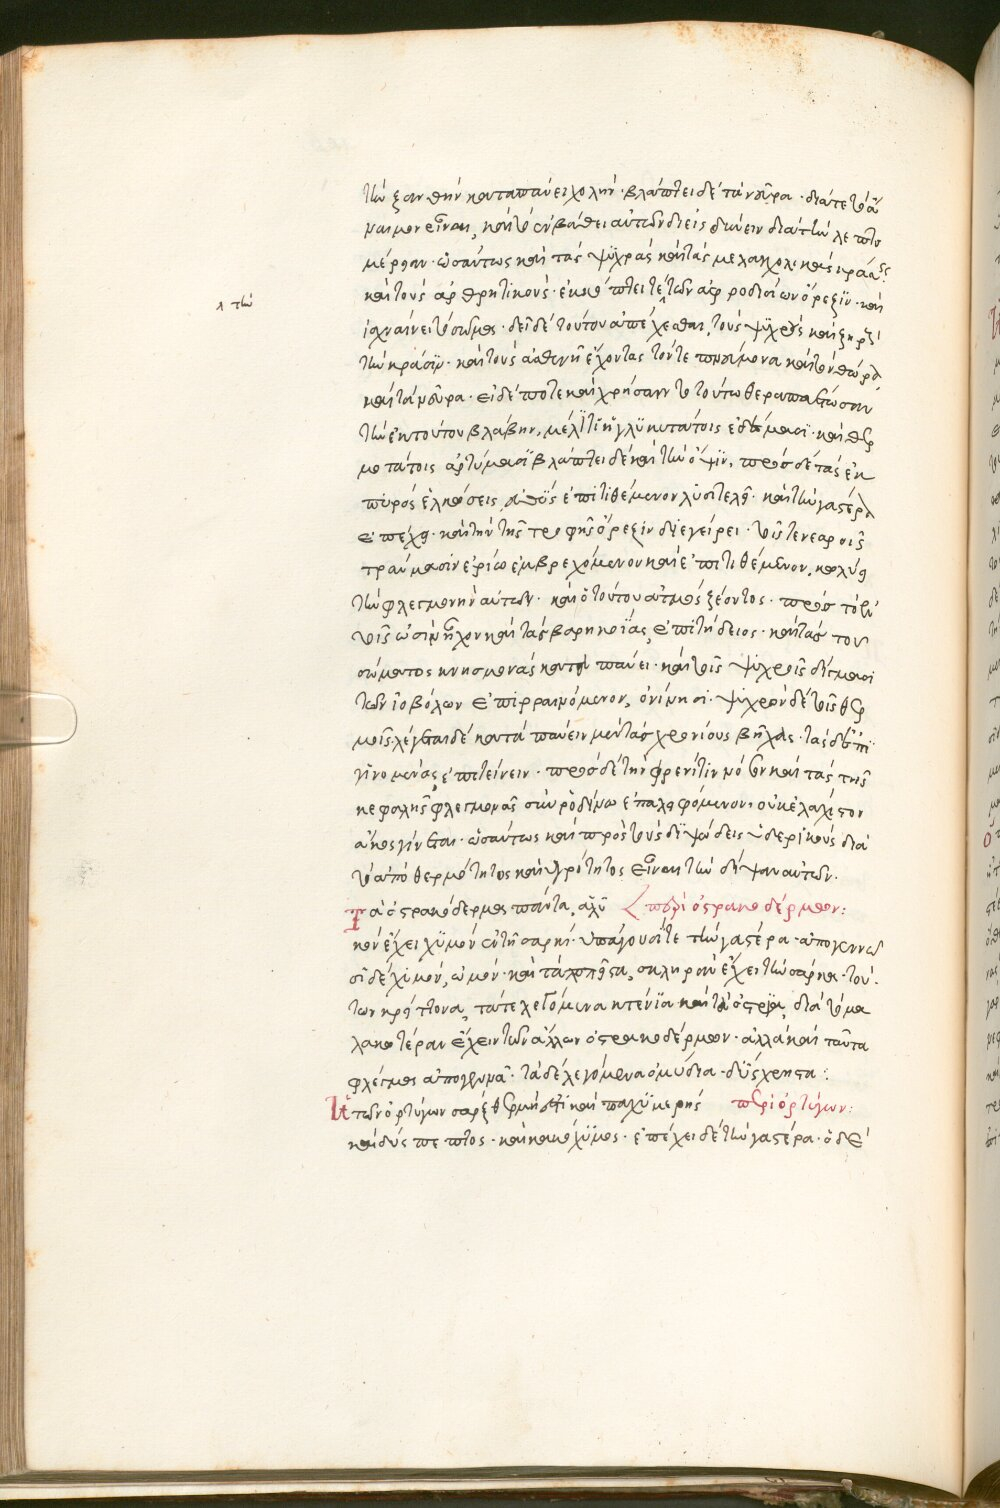 τὴν ξανθὴν καταπαύει χολήν· βλάπτει δὲ τὰ νεῦρα· διά τε τὸ ἄ
ναιμον εἶναι, καὶ τὸ ἐν βάθει αὐτῶν διεισδύνειν διὰ τὴν λεπτο
μέρειαν· ὡσαύτως καὶ τὰς ψυχρὰς καὶ τὰς μελαγχολικὰς κράσεις·
καὶ τοὺς ἀρθριτικούς· ἐκκόπτει τε τῶν ἀφροδισίων ὄρεξιν· καὶ
⸌ τὴν
ἰσχναίνει τὸ σῶμα· δεῖ δὲ τούτου ἀπέχεσθαι, τοὺς ψυχροὺς καὶ ξηροὺς
τὴν κρᾶσιν· καὶ τοὺς ἀσθενῆ ἔχοντας τόν τε πνεύμονα καὶ τὸν θώρακα,
καὶ τὰ νεῦρα· εἰ δέ ποτε καὶ χρήσαιντο τούτω θεραπευέτωσαν
τὴν ἐκ τούτου βλάβην, μέλιτι ἢ γλυκυτάτοις ἐδέσμασι· καὶ θερ
μοτάτοις ἀρτύμασι βλάπτει δὲ καὶ τὴν ὄψιν, πρὸς δὲ τὰς ἐκ
πυρὸς ἑλκώσεις, εὐθὺς ἐπιτιθέμενον λυσιτελεῖ· καὶ τὴν γαστέρα
ἐπέχει· καὶ τὴν τῆς τροφῆς ὄρεξιν διεγείρει· τοῖς τε νεαροῖς
τραύμασιν ἐρίω ἐμβρεχόμενον καὶ ἐπιτιθέμενον, κωλύει
τὴν φλεγμονὴν αὐτῶν· καὶ ὁ τούτου ἀτμὸς ζέοντος· πρὸς τὸν ἐν
τοῖς ὠσὶν ἦχον καὶ τὰς βαρηκοΐας, ἐπιτήδειος· καὶ τὰς τοῦ
σώματος κνησμονὰς καταπαύει· καὶ τοῖς ψυχροῖς δήγμασι
τῶν ἰοβόλων ἐπιρραινόμενον, ὀνίνησι· ψυχρὸν δὲ τοῖς θερ
μοῖς· λέγεται δὲ καταπαύειν μὲν τὰς χρονίους βῆχας· τὰς δὲ ἐπι
γινομένας ἐπιτείνειν· πρὸς δὲ τὴν φρενῖτιν νόσον καὶ τὰς τῆς
κεφαλῆς φλεγμονὰς σὺν ῥοδίνω ἐπαλειφόμενον, οὐκ ἐλάχιστον
ἄκος γίνεται· ὡσαύτως καὶ πρὸς τοὺς διψώδεις ὑδερικοὺς διὰ
τὸ ἀπὸ θερμότητος καὶ ὑγρότητος εἶναι τὴν δίψαν αὐτῶν.
Τὰ ὀστρακόδερμα πάντα, ἁλυ περὶ ὀστρακοδέρμων:
κὸν ἔχει χυμὸν ἐν τῇ σαρκί· ὑπάγουσί τε τὴν γαστέρα· ἀπογεννῶ
σι δὲ χυμόν, ὠμόν· καὶ τὰ πλεῖστα, σκληρὰν ἔχει τὴν σάρκα· τού
των κρείττονα, τά τε λεγόμενα κτένια καὶ τὰ ὄστρεα, διὰ τὸ μα
λακωτέραν ἔχειν τῶν ἄλλων ὀστρακοδέρμων· ἀλλὰ καὶ ταῦτα
φλέγμα ἀπογεννᾶ· τὰ δὲ λεγόμενα ὀμύδια· δύσχρηστα:
Ἡ τῶν ὀρτύγων σὰρξ θερμή ἐστι καὶ παχυμερής περὶ ὀρτύγων:
καὶ δύσπεπτος· καὶ κακόχυμος· ἐπέχει δὲ τὴν γαστέρα· ὁ δὲ